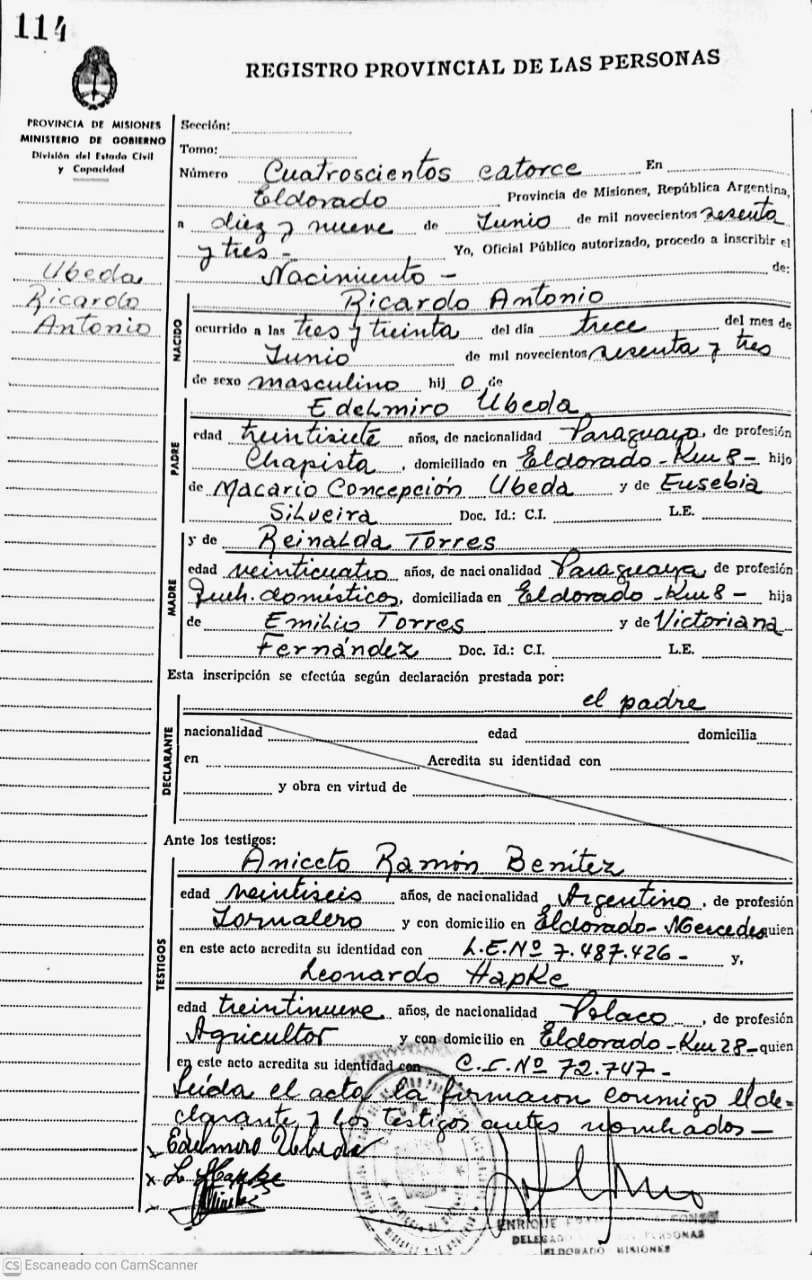 114
REGISTRO PROVINCIAL DE LAS PERSONAS
PROVINCIA DE MISIONES
MINISTERIO DE GOBIERNO
División del Estado Civil
y Capacidad
Ubeda
Ricardo
Antonio
Sección:
Tomo:
Número Cuatroscientos catorce En
Eldorado Provincia de Misiones, República Argentina,
a diez y nueve de Junio de mil novecientos sesenta
y tres - Yo, Oficial Público autorizado, procedo a inscribir el
Nacimiento - de:
Ricardo Antonio
NACIDO
ocurrido a las tres y treinta del día trece del mes de
Junio de mil novecientos sesenta y tres
de sexo masculino hij o de
Edelmiro Ubeda
PADRE
edad treintisiete años, de nacionalidad Paraguayo, de profesión
Chapista, domiciliado en Eldorado - Km 8 - hijo
de Macario Concepción Ubeda y de Eusebia
Silveira Doc. Id.: C.I. L.E.
MADRE
y de Reinalda Torres
edad veinticuatro años, de nacionalidad Paraguaya de profesión
Queh. domésticos, domiciliada en Eldorado - Km 8 - hija
de Emilio Torres y de Victoriana
Fernández Doc. Id.: C.I. L.E.
Esta inscripción se efectúa según declaración prestada por:
el padre
DECLARANTE
nacionalidad edad domicilia
en Acredita su identidad con
y obra en virtud de
Ante los testigos:
Aniceto Ramón Benítez
TESTIGOS
edad veintiseis años, de nacionalidad Argentino, de profesión
Jornalero y con domicilio en Eldorado - Mercedes quien
en este acto acredita su identidad con L.E. Nº 7.487.426 - y,
Leonardo Hapke
edad treintinueve años, de nacionalidad Polaco, de profesión
Agricultor y con domicilio en Eldorado - Km 28 - quien
en este acto acredita su identidad con C.I. Nº 72.747 -
Leída el acta la firmaron conmigo el de=
clarante y los testigos antes nombrados -
x Edelmiro Ubeda
x L. Hapke
x
ENRIQUE
ELDORADO MISIONES
CS Escaneado con CamScanner